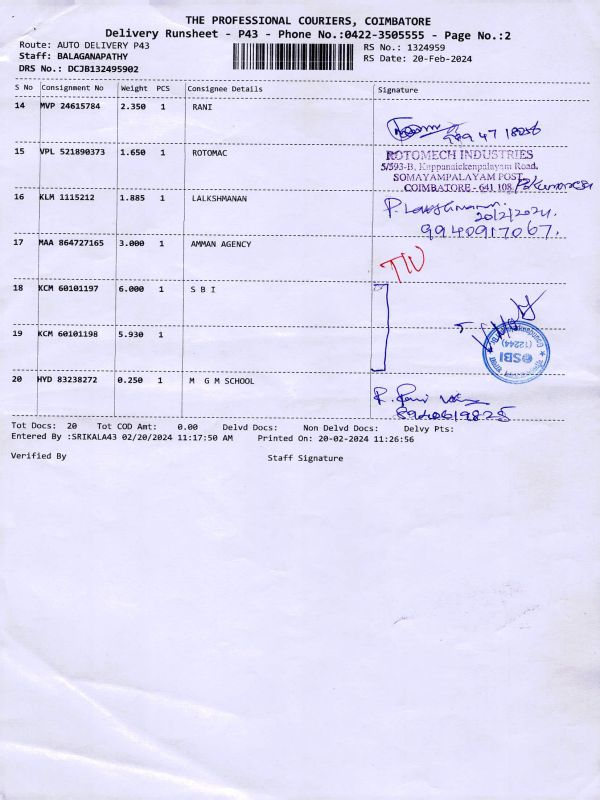 THE PROFESSIONAL COURIERS, COIMBATORE
Delivery Runsheet - P43 - Phone No.:0422-3505555 - Page No.:2
Route: AUTO DELIVERY P43 RS No.: 1324959
Staff: BALAGANAPATHY RS Date: 20-Feb-2024
DRS No.: DCJB132495902
S No Consignment No Weight PCS Consignee Details Signature
14 MVP 24615784 2.350 1 RANI
15 VPL 521890373 1.650 1 ROTOMAC
ROTOMECH INDUSTRIES
5/593-B, Kuppanaickenpalayam Road,
SOMAYAMPALAYAM POST
COIMBATORE - 641 108.
16 KLM 1115212 1.885 1 LALKSHMANAN
20/2/2024.
9940917067.
17 MAA 864727165 3.000 1 AMMAN AGENCY
18 KCM 60101197 6.000 1 S B I
SBI
(12244)
19 KCM 60101198 5.930 1
20 HYD 83238272 0.250 1 M G M SCHOOL
8940619825
Tot Docs: 20 Tot COD Amt: 0.00 Delvd Docs: Non Delvd Docs: Delvy Pts:
Entered By :SRIKALA43 02/20/2024 11:17:50 AM Printed On: 20-02-2024 11:26:56
Verified By Staff Signature